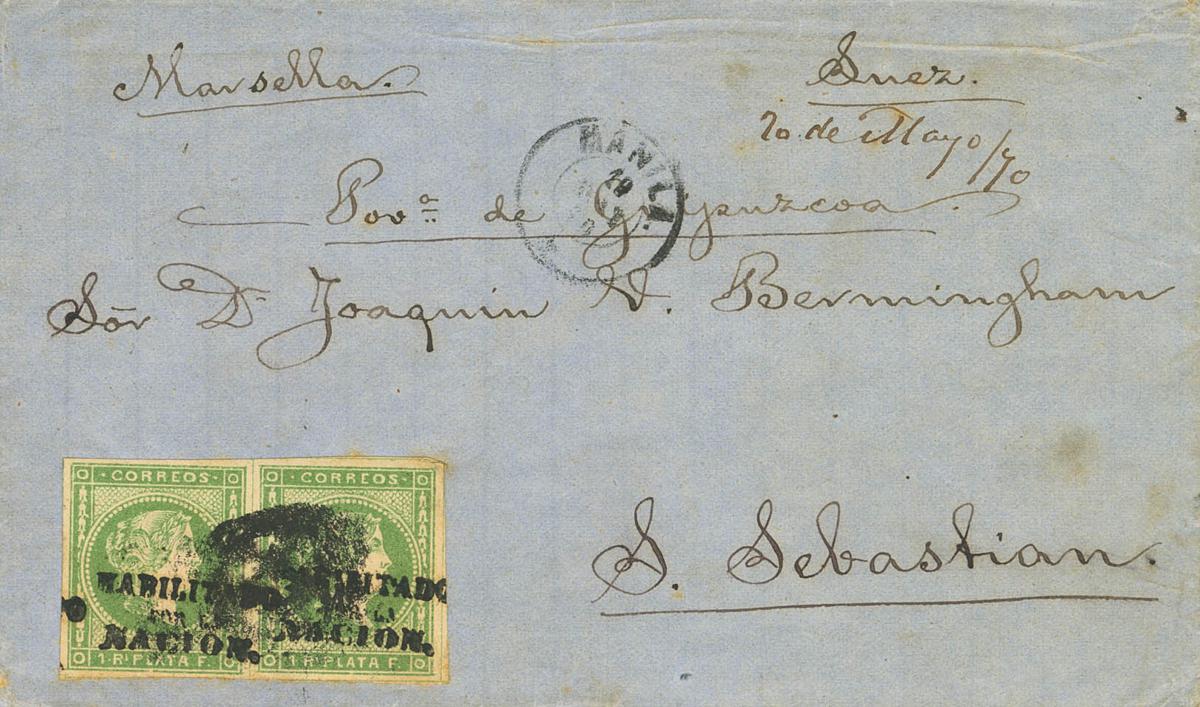 Marsella.
Suez.
20 de Mayo/70
MANILA.
Prova de Guipuzcoa.
Sōr Dn Joaquin V. Bermingham
S. Sebastian.
CORREOS CORREOS
HABILITADO HABILITADO
POR LA POR LA
NACION. NACION.
1 Rl PLATA F. 1 Rl PLATA F.